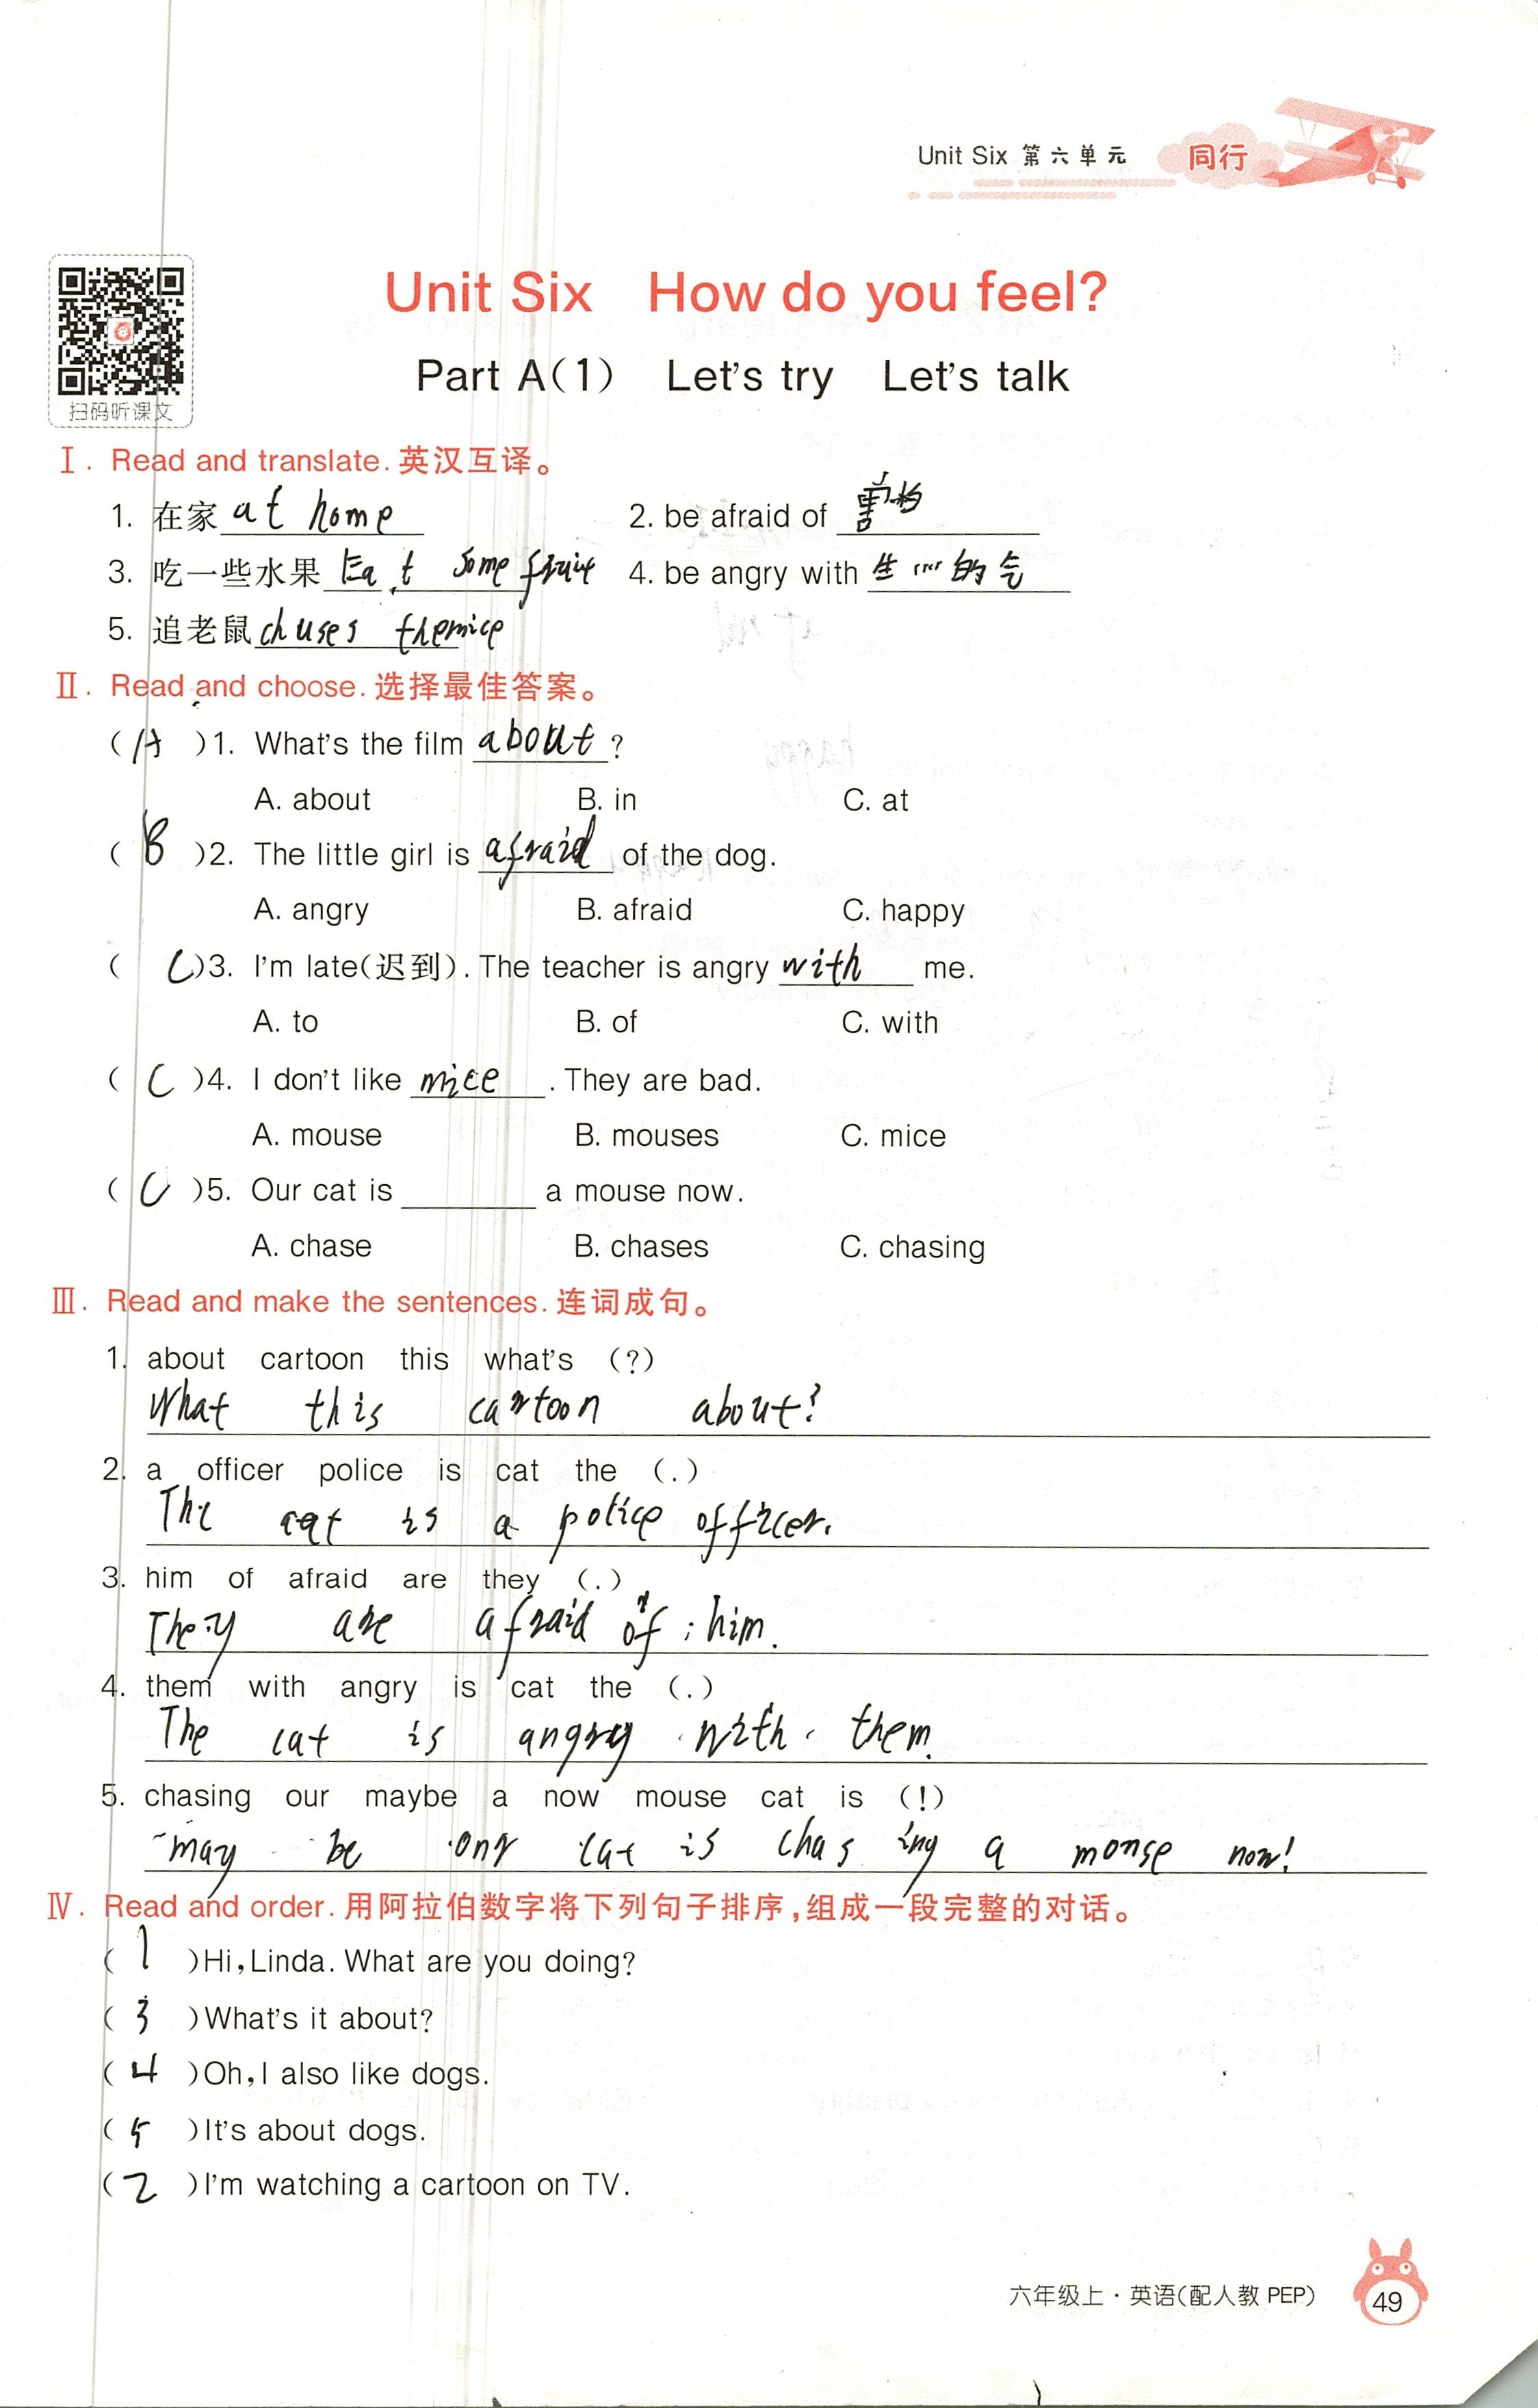 Unit Six 第六单元 同行
Unit Six How do you feel?
Part A(1) Let's try Let's talk
扫码听课文
Ⅰ. Read and translate. 英汉互译。
1. 在家 at home 2. be afraid of 害怕
3. 吃一些水果 Eat some fruit 4. be angry with 生……的气
5. 追老鼠 chuses themice
Ⅱ. Read and choose. 选择最佳答案。
( A )1. What's the film about ?
A. about B. in C. at
( B )2. The little girl is afraid of the dog.
A. angry B. afraid C. happy
( C )3. I'm late(迟到). The teacher is angry with me.
A. to B. of C. with
( C )4. I don't like mice . They are bad.
A. mouse B. mouses C. mice
( C )5. Our cat is ________ a mouse now.
A. chase B. chases C. chasing
Ⅲ. Read and make the sentences. 连词成句。
1. about cartoon this what's (?)
What this cartoon about?
2. a officer police is cat the (.)
The cat is a police officer.
3. him of afraid are they (.)
They are afraid of him.
4. them with angry is cat the (.)
The cat is angry with them.
5. chasing our maybe a now mouse cat is (!)
may be our cat is chasing a mouse now!
Ⅳ. Read and order. 用阿拉伯数字将下列句子排序,组成一段完整的对话。
( 1 )Hi, Linda. What are you doing?
( 3 )What's it about?
( 4 )Oh, I also like dogs.
( 5 )It's about dogs.
( 2 )I'm watching a cartoon on TV.
六年级上·英语(配人教 PEP) 49